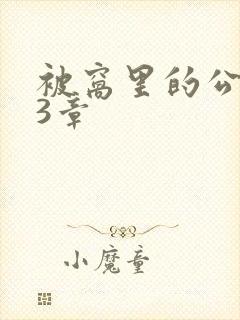 被窝里的公
3章
小魔童